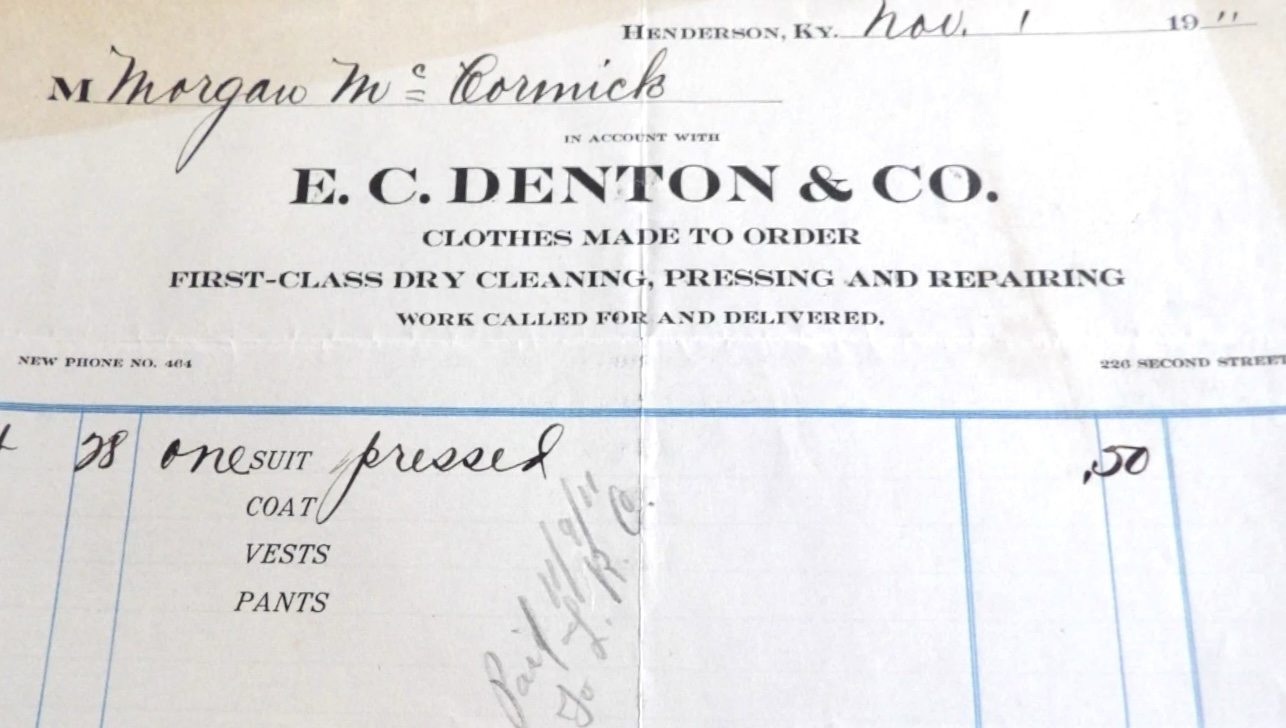 HENDERSON, KY. Nov. 1 19 11
M Morgan Mc Cormick
IN ACCOUNT WITH
E. C. DENTON & CO.
CLOTHES MADE TO ORDER
FIRST-CLASS DRY CLEANING, PRESSING AND REPAIRING
WORK CALLED FOR AND DELIVERED.
NEW PHONE NO. 464 226 SECOND STREET
28 one SUIT pressed .50
COAT
VESTS
PANTS
Paid 11/9/11
To L. R. C.